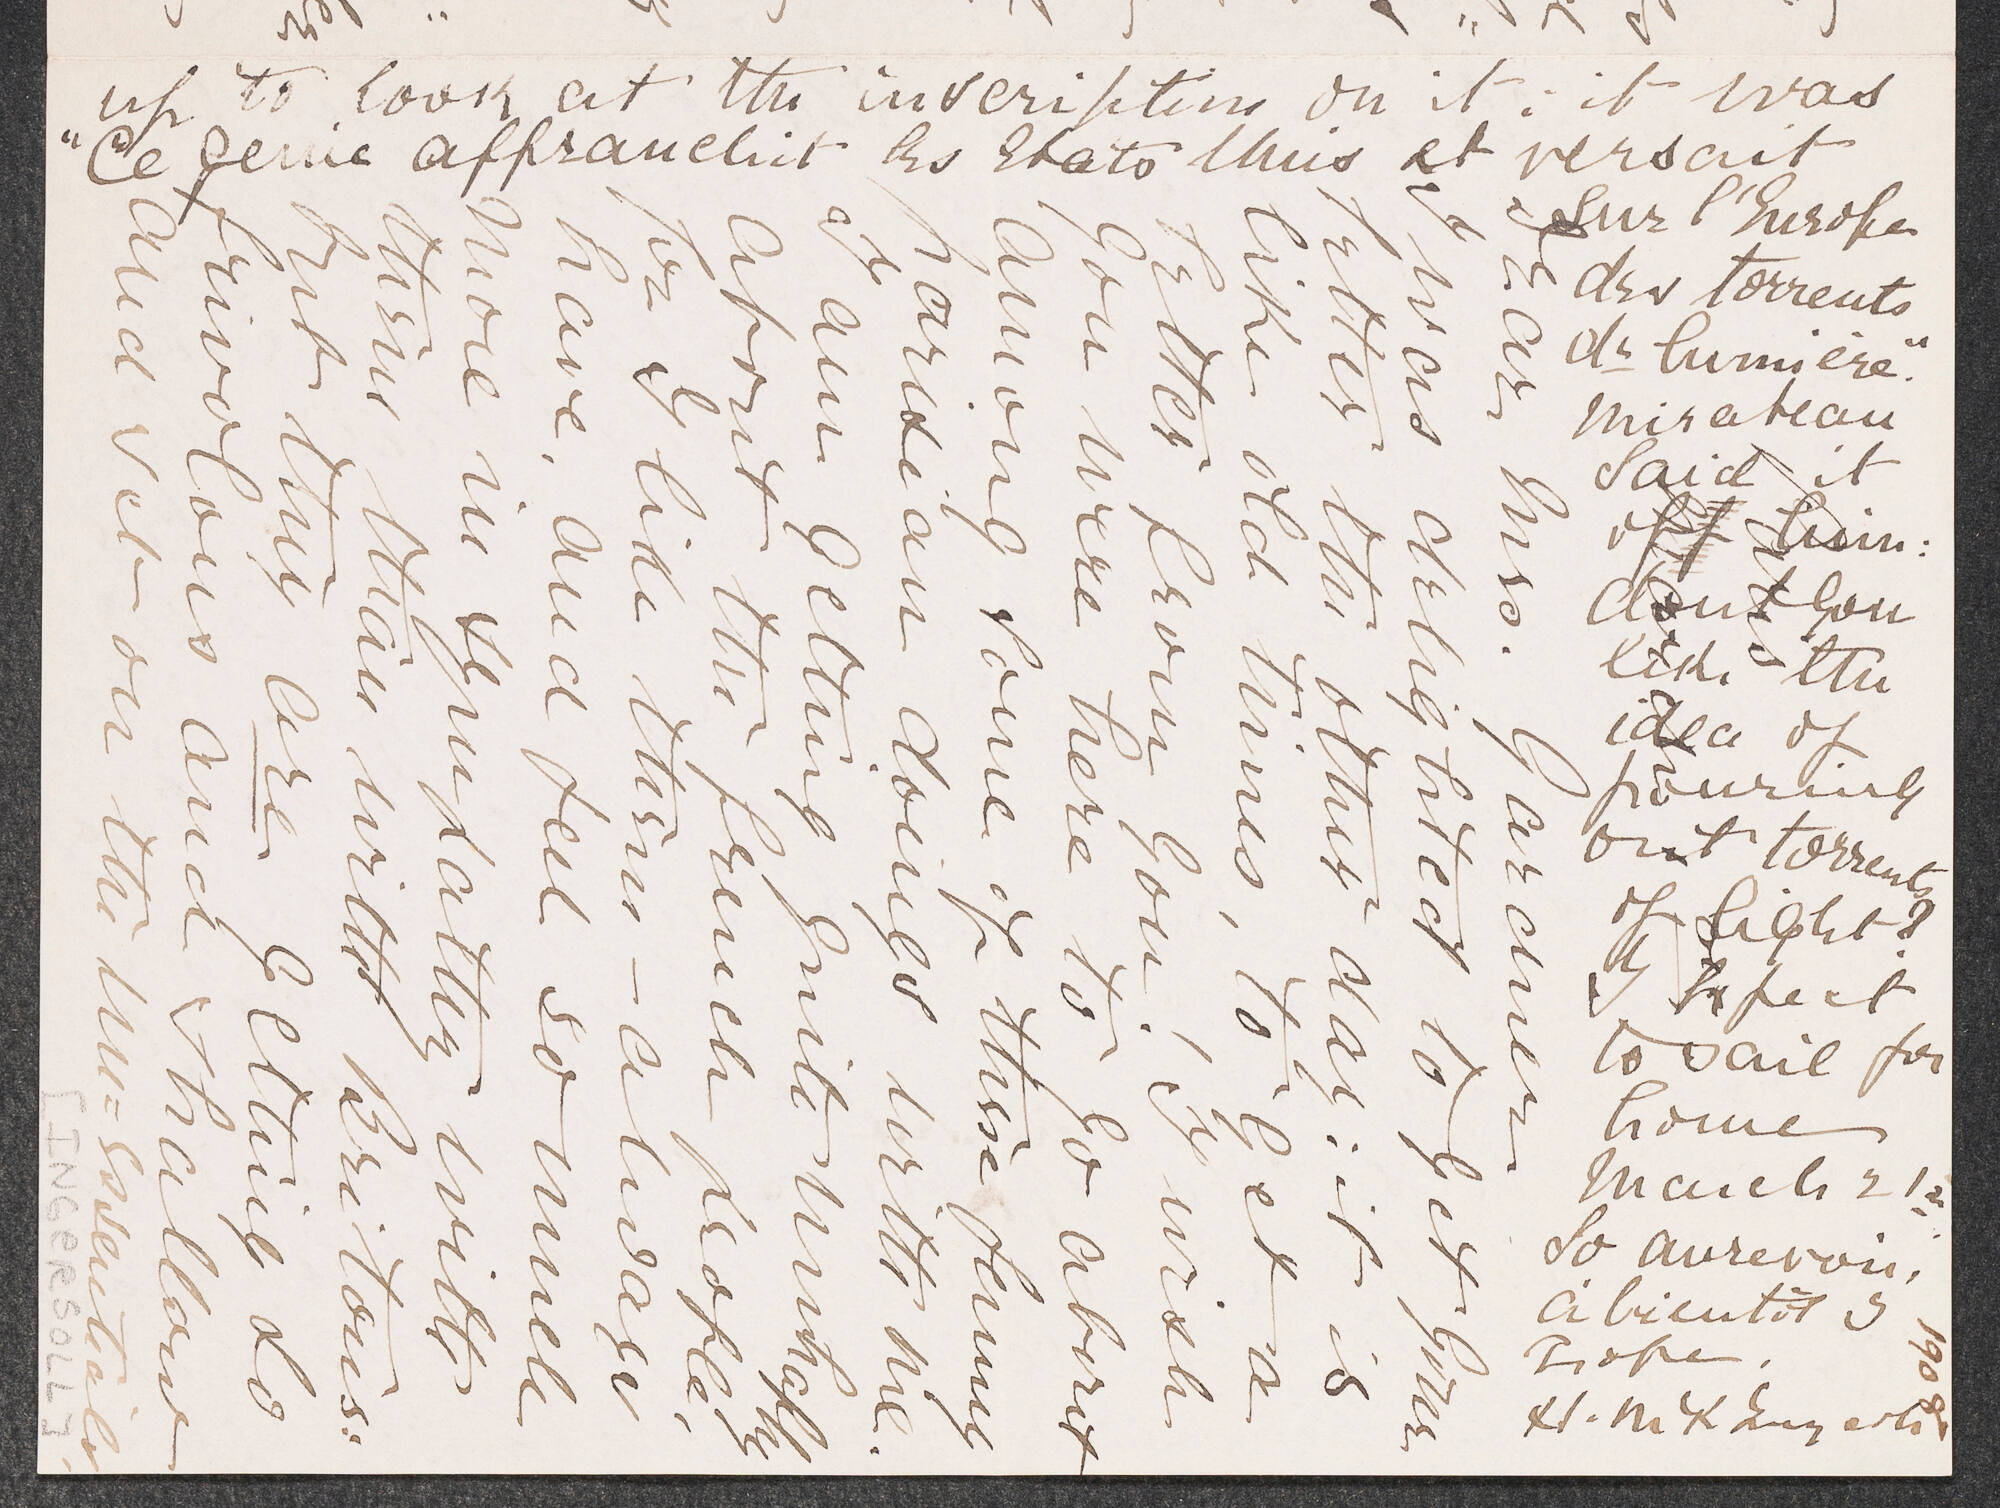 up to look at the inscription on it: it was
"Ce genie affranchit les Etats Unis et versait
sur l'Europe
des torrents
de lumière."
Mirabeau
said it
of him:
dont you
like the
idea of
pouring
out torrents
of light?
I expect
to sail for
home
March 21st.
So aurevoir,
à bientôt I
hope,
H. McK Ingersoll
1908
Dear Mrs. Gardner
I was delighted to get your
letter the other day: it is
like old times, to get a
letter from you. I wish
you were here to go about
among some of these funny
parisian doings with me.
I am getting quite unhappy
about the french people,
for I like them - always
have, and feel so much
more in sympathy with
them than with Britons:
but they are getting so
frivolous and shallow
and set on the un=essentials,
[INGERSOLL]